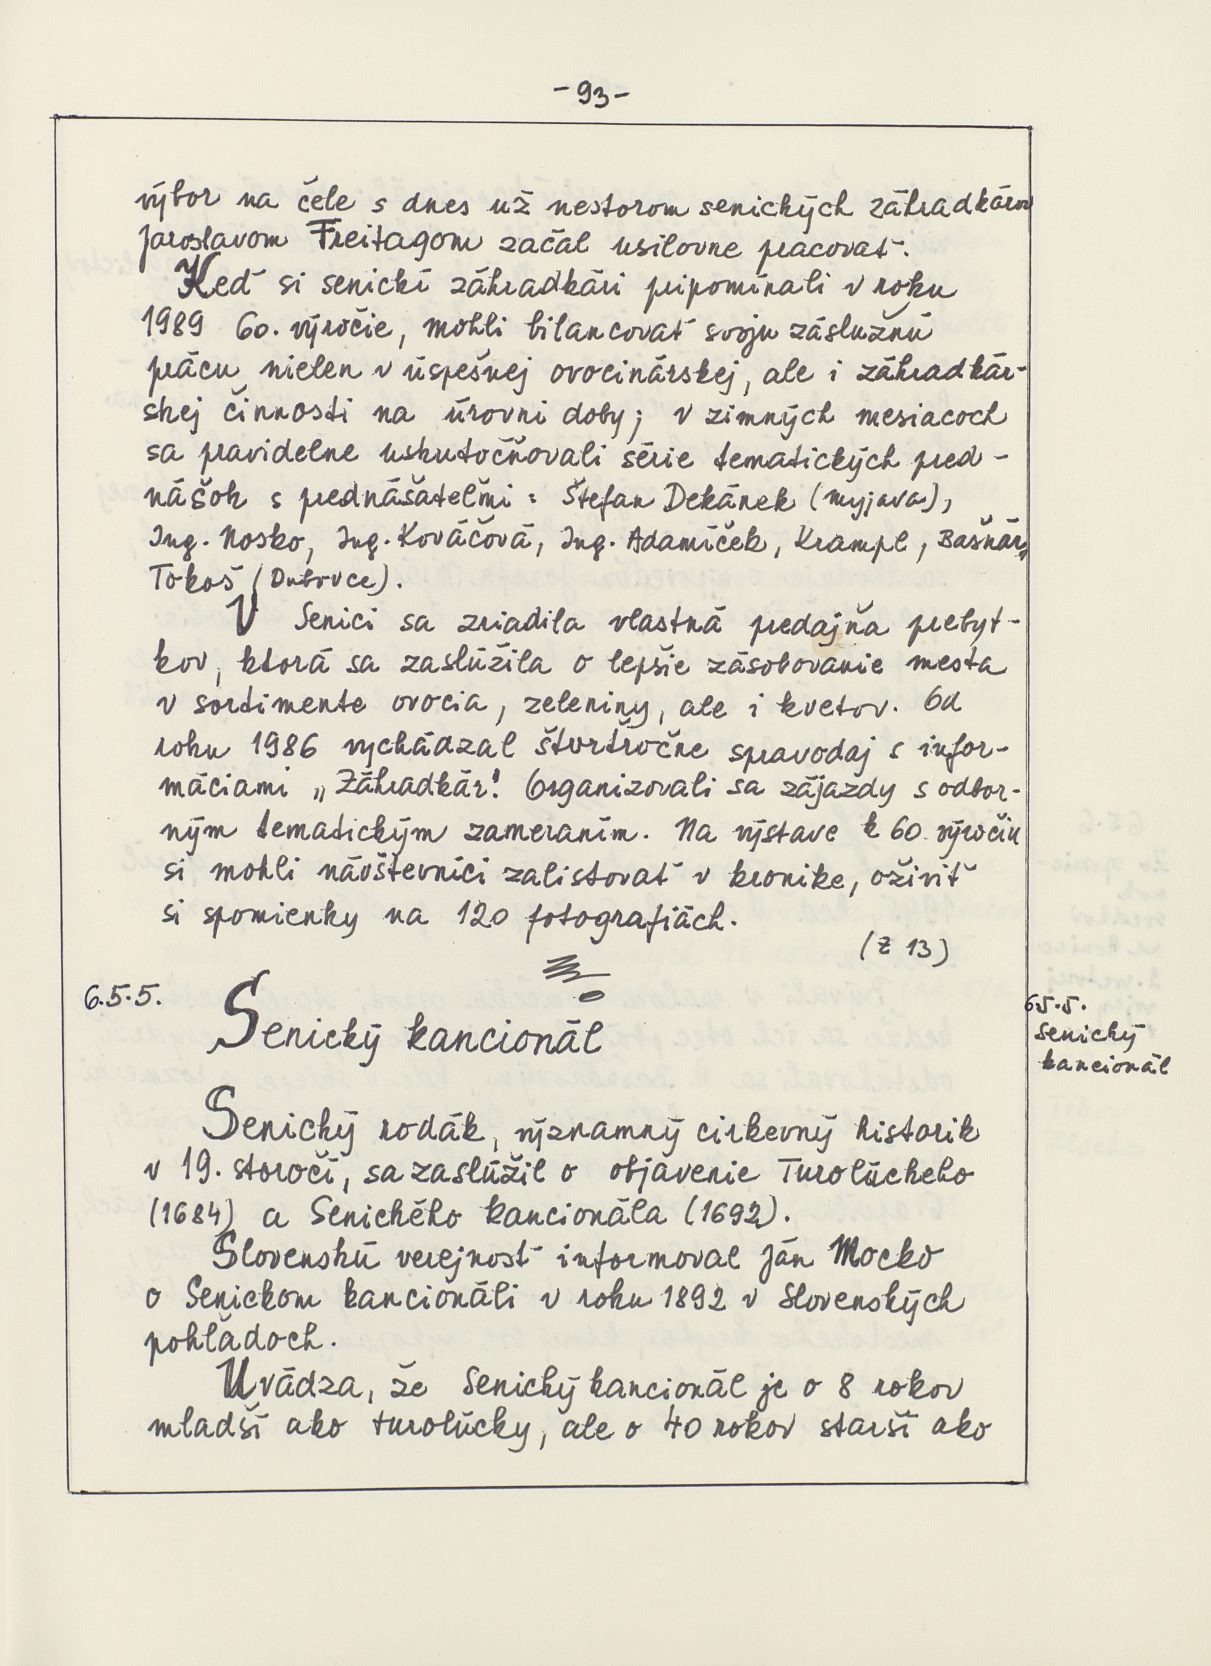 -93-
výbor na čele s dnes už nestorom senických záhradkárov
Jaroslavom Freitagom začal usilovne pracovať.
Keď si senickí záhradkári pripomínali v roku
1989 60. výročie, mohli bilancovať svoju záslužnú
prácu nielen v úspešnej ovocinárskej, ale i záhradkár-
skej činnosti na úrovni doby; v zimných mesiacoch
sa pravidelne uskutočňovali série tematických pred-
nášok s prednášateľmi: Štefan Dekánek (Myjava),
Ing. Nosko, Ing. Kováčová, Ing. Adamíček, Krampl, Bašnár,
Tokoš (Dubovce).
V Senici sa zriadila vlastná predajňa prebyt-
kov, ktorá sa zaslúžila o lepšie zásobovanie mesta
v sortimente ovocia, zeleniny, ale i kvetov. Od
roku 1986 vychádzal štvrťročne spravodaj s infor-
máciami „Záhradkár". Organizovali sa zájazdy s odbor-
ným tematickým zameraním. Na výstave k 60. výročiu
si mohli návštevníci zalistovať v kronike, oživiť
si spomienky na 120 fotografiách.
(Z 13)
6.5.5.
Senický kancionál
6.5.5.
Senický
kancionál
Senický rodák, významný cirkevný historik
v 19. storočí, sa zaslúžil o objavenie Turolúckeho
(1684) a Senického kancionála (1692).
Slovenskú verejnosť informoval Ján Mocko
o Senickom kancionáli v roku 1892 v Slovenských
pohľadoch.
Uvádza, že Senický kancionál je o 8 rokov
mladší ako turolúcky, ale o 40 rokov starší ako